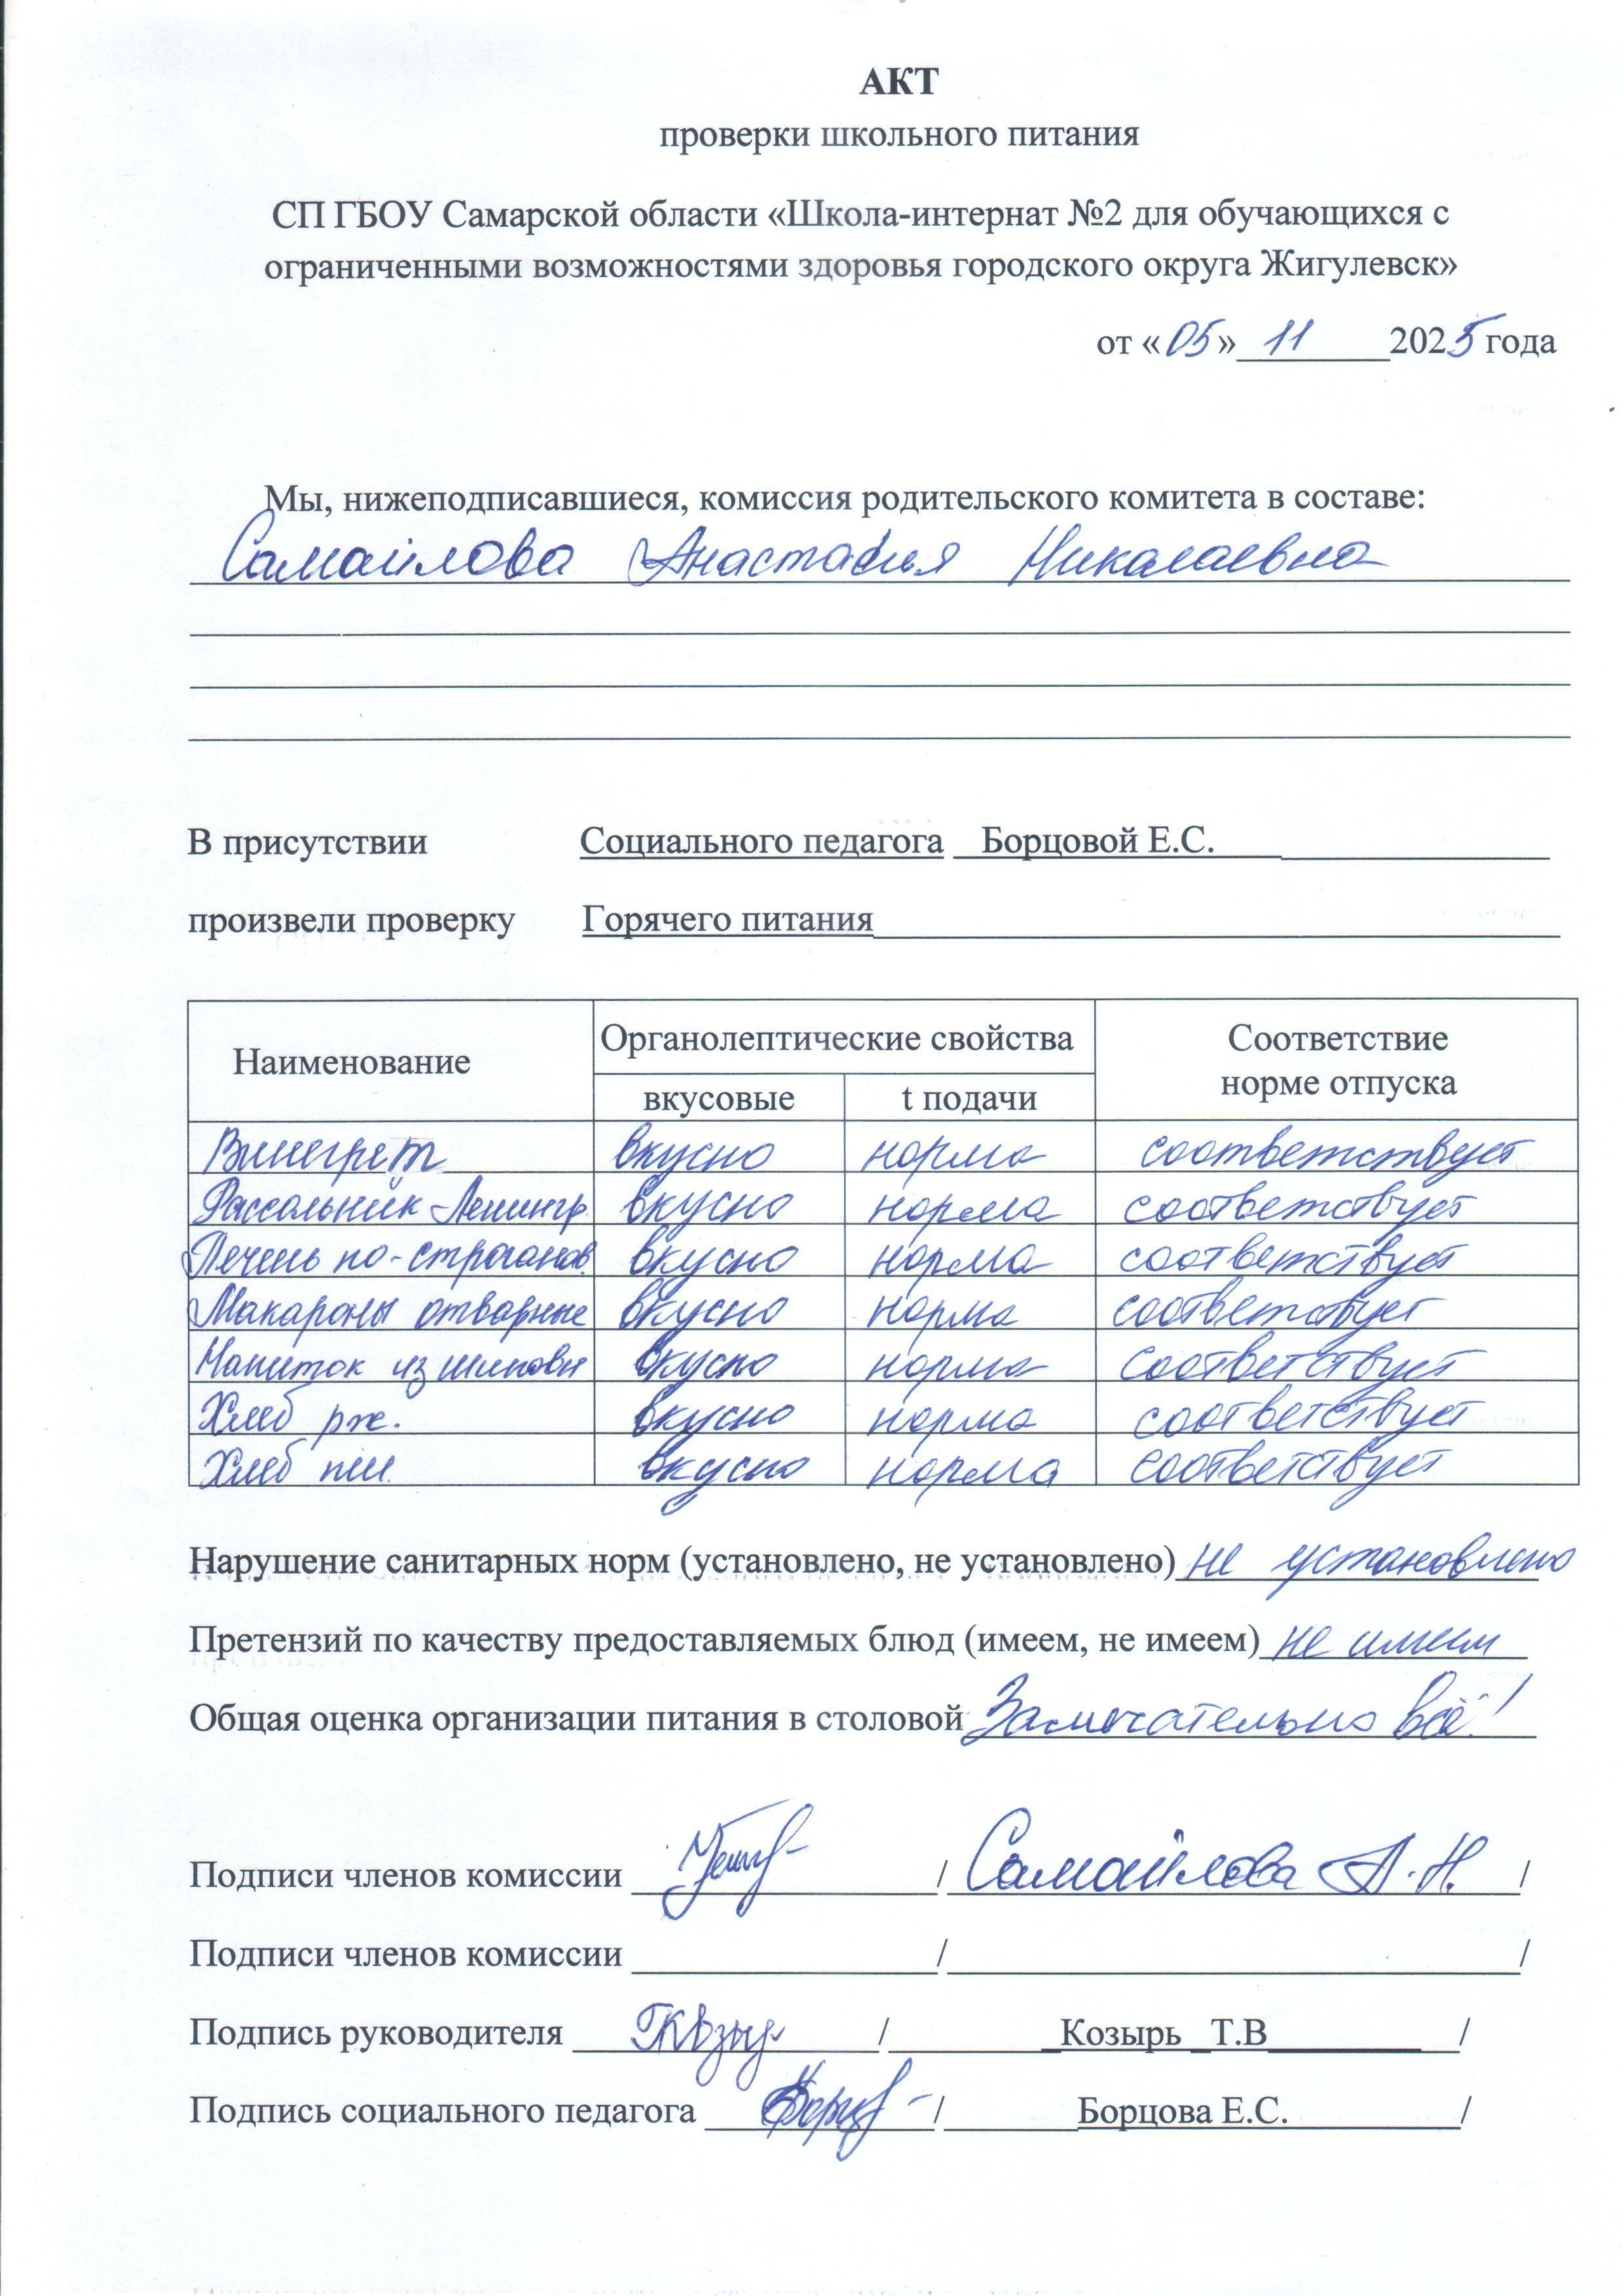 АКТ
проверки школьного питания
СП ГБОУ Самарской области «Школа-интернат №2 для обучающихся с
ограниченными возможностями здоровья городского округа Жигулевск»
от «05» 11 2025 года
Мы, нижеподписавшиеся, комиссия родительского комитета в составе:
Самайлова Анастасия Николаевна
В присутствии Социального педагога Борцовой Е.С.
произвели проверку Горячего питания
Наименование Органолептические свойства Соответствие норме отпуска
вкусовые t подачи
Винегрет вкусно норма соответствует
Рассольник Ленингр. вкусно норма соответствует
Печень по-строганов. вкусно норма соответствует
Макароны отварные вкусно норма соответствует
Напиток из шиповн вкусно норма соответствует
Хлеб рж. вкусно норма соответствует
Хлеб пш. вкусно норма соответствует
Нарушение санитарных норм (установлено, не установлено) не установлено
Претензий по качеству предоставляемых блюд (имеем, не имеем) не имеем
Общая оценка организации питания в столовой Замечательно всё!
Подписи членов комиссии / Самайлова А.Н. /
Подписи членов комиссии / /
Подпись руководителя / Козырь Т.В /
Подпись социального педагога / Борцова Е.С. /